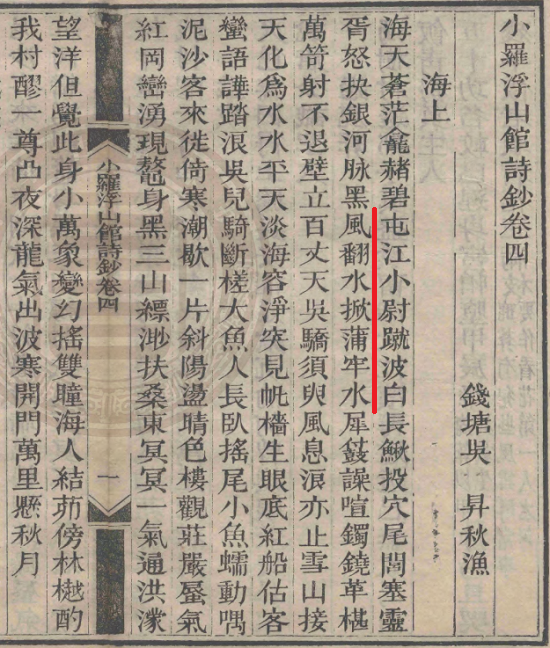 小羅浮山館詩鈔卷四
錢塘吳 昇秋漁
海上
海天蒼茫龕赭碧屯江小尉蹴波白長鰍投穴尾閭塞靈
胥怒抉銀河脉黑風翻水掀蒲牢水犀鼓譟喧鐲鐃革椹
萬笴射不退壁立百丈天吳驕須臾風息浪亦止雪山接
天化爲水水平天淡海容淨突見㠶檣生眼底紅船估客
蠻語譁踏浪吳兒騎斷槎大魚人長臥搖尾小魚蠕動喁
泥沙客來徙倚寒潮歇一片斜陽盪晴色樓觀莊嚴蜃氣
紅岡巒湧現鼇身黑三山縹渺扶桑東冥冥一氣通洪濛
小羅浮山館詩鈔卷四 一
望洋但覺此身小萬象變幻搖雙瞳海人結茆傍林樾酌
我村醪一尊凸夜深龍氣出波寒開門萬里懸秋月